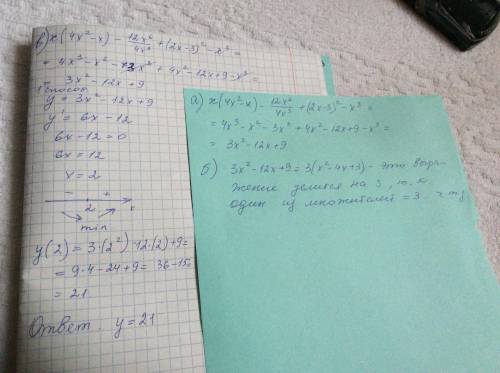 в) x(4x²-x) - 12x⁶/4x³ + (2x-3)² - x³ =
= 4x³ - x² - 3x² + 4x² - 12x + 9 - x³ =
= 3x² - 12x + 9
1 способ
y = 3x² - 12x + 9
y' = 6x - 12
6x - 12 = 0
6x = 12
x = 2
- +
2 x
min
y(2) = 3·(2²)·12·(2)+9=
= 9·4-24+9= 36-15=
= 21
Ответ. y = 21
а) x(4x²-x) - 12x⁶/4x³ + (2x-3)² - x³ =
= 4x³ - x² - 3x² + 4x² - 12x + 9 - x³ =
= 3x² - 12x + 9
б) 3x² - 12x + 9 = 3(x² - 4x + 3) - это выра-
жение делится на 3, т.к.
один из множителей = 3. чтд